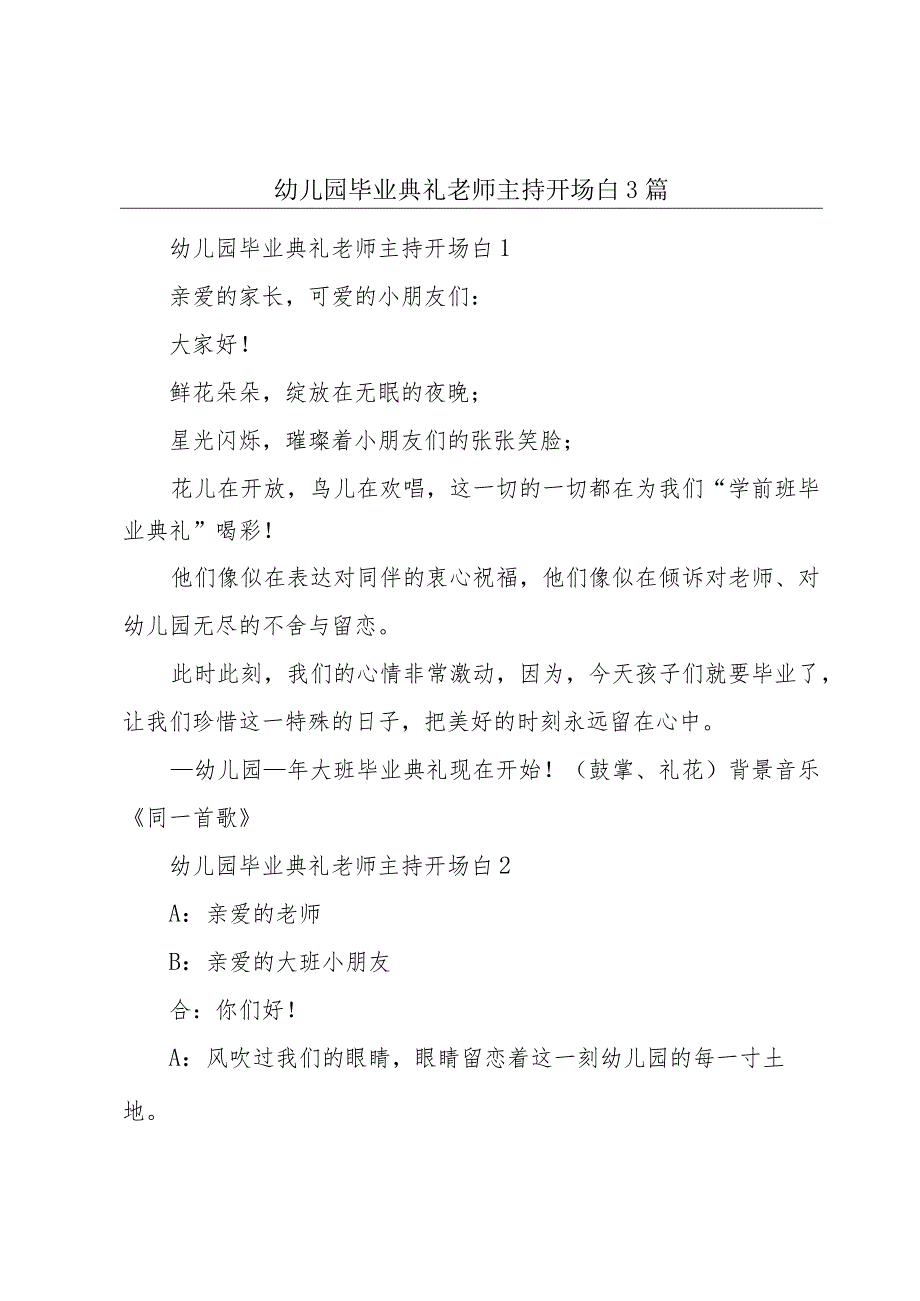 幼儿园毕业典礼老师主持开场白 3 篇
幼儿园毕业典礼老师主持开场白 1
亲爱的家长，可爱的小朋友们：
大家好！
鲜花朵朵，绽放在无眠的夜晚；
星光闪烁，璀璨着小朋友们的张张笑脸；
花儿在开放，鸟儿在欢唱，这一切的一切都在为我们“学前班毕
业典礼”喝彩！
他们像似在表达对同伴的衷心祝福，他们像似在倾诉对老师、对
幼儿园无尽的不舍与留恋。
此时此刻，我们的心情非常激动，因为，今天孩子们就要毕业了，
让我们珍惜这一特殊的日子，把美好的时刻永远留在心中。
—幼儿园—年大班毕业典礼现在开始！（鼓掌、礼花）背景音乐
《同一首歌》
幼儿园毕业典礼老师主持开场白 2
A：亲爱的老师
B：亲爱的大班小朋友
合：你们好！
A：风吹过我们的眼睛，眼睛留恋着这一刻幼儿园的每一寸土
地。